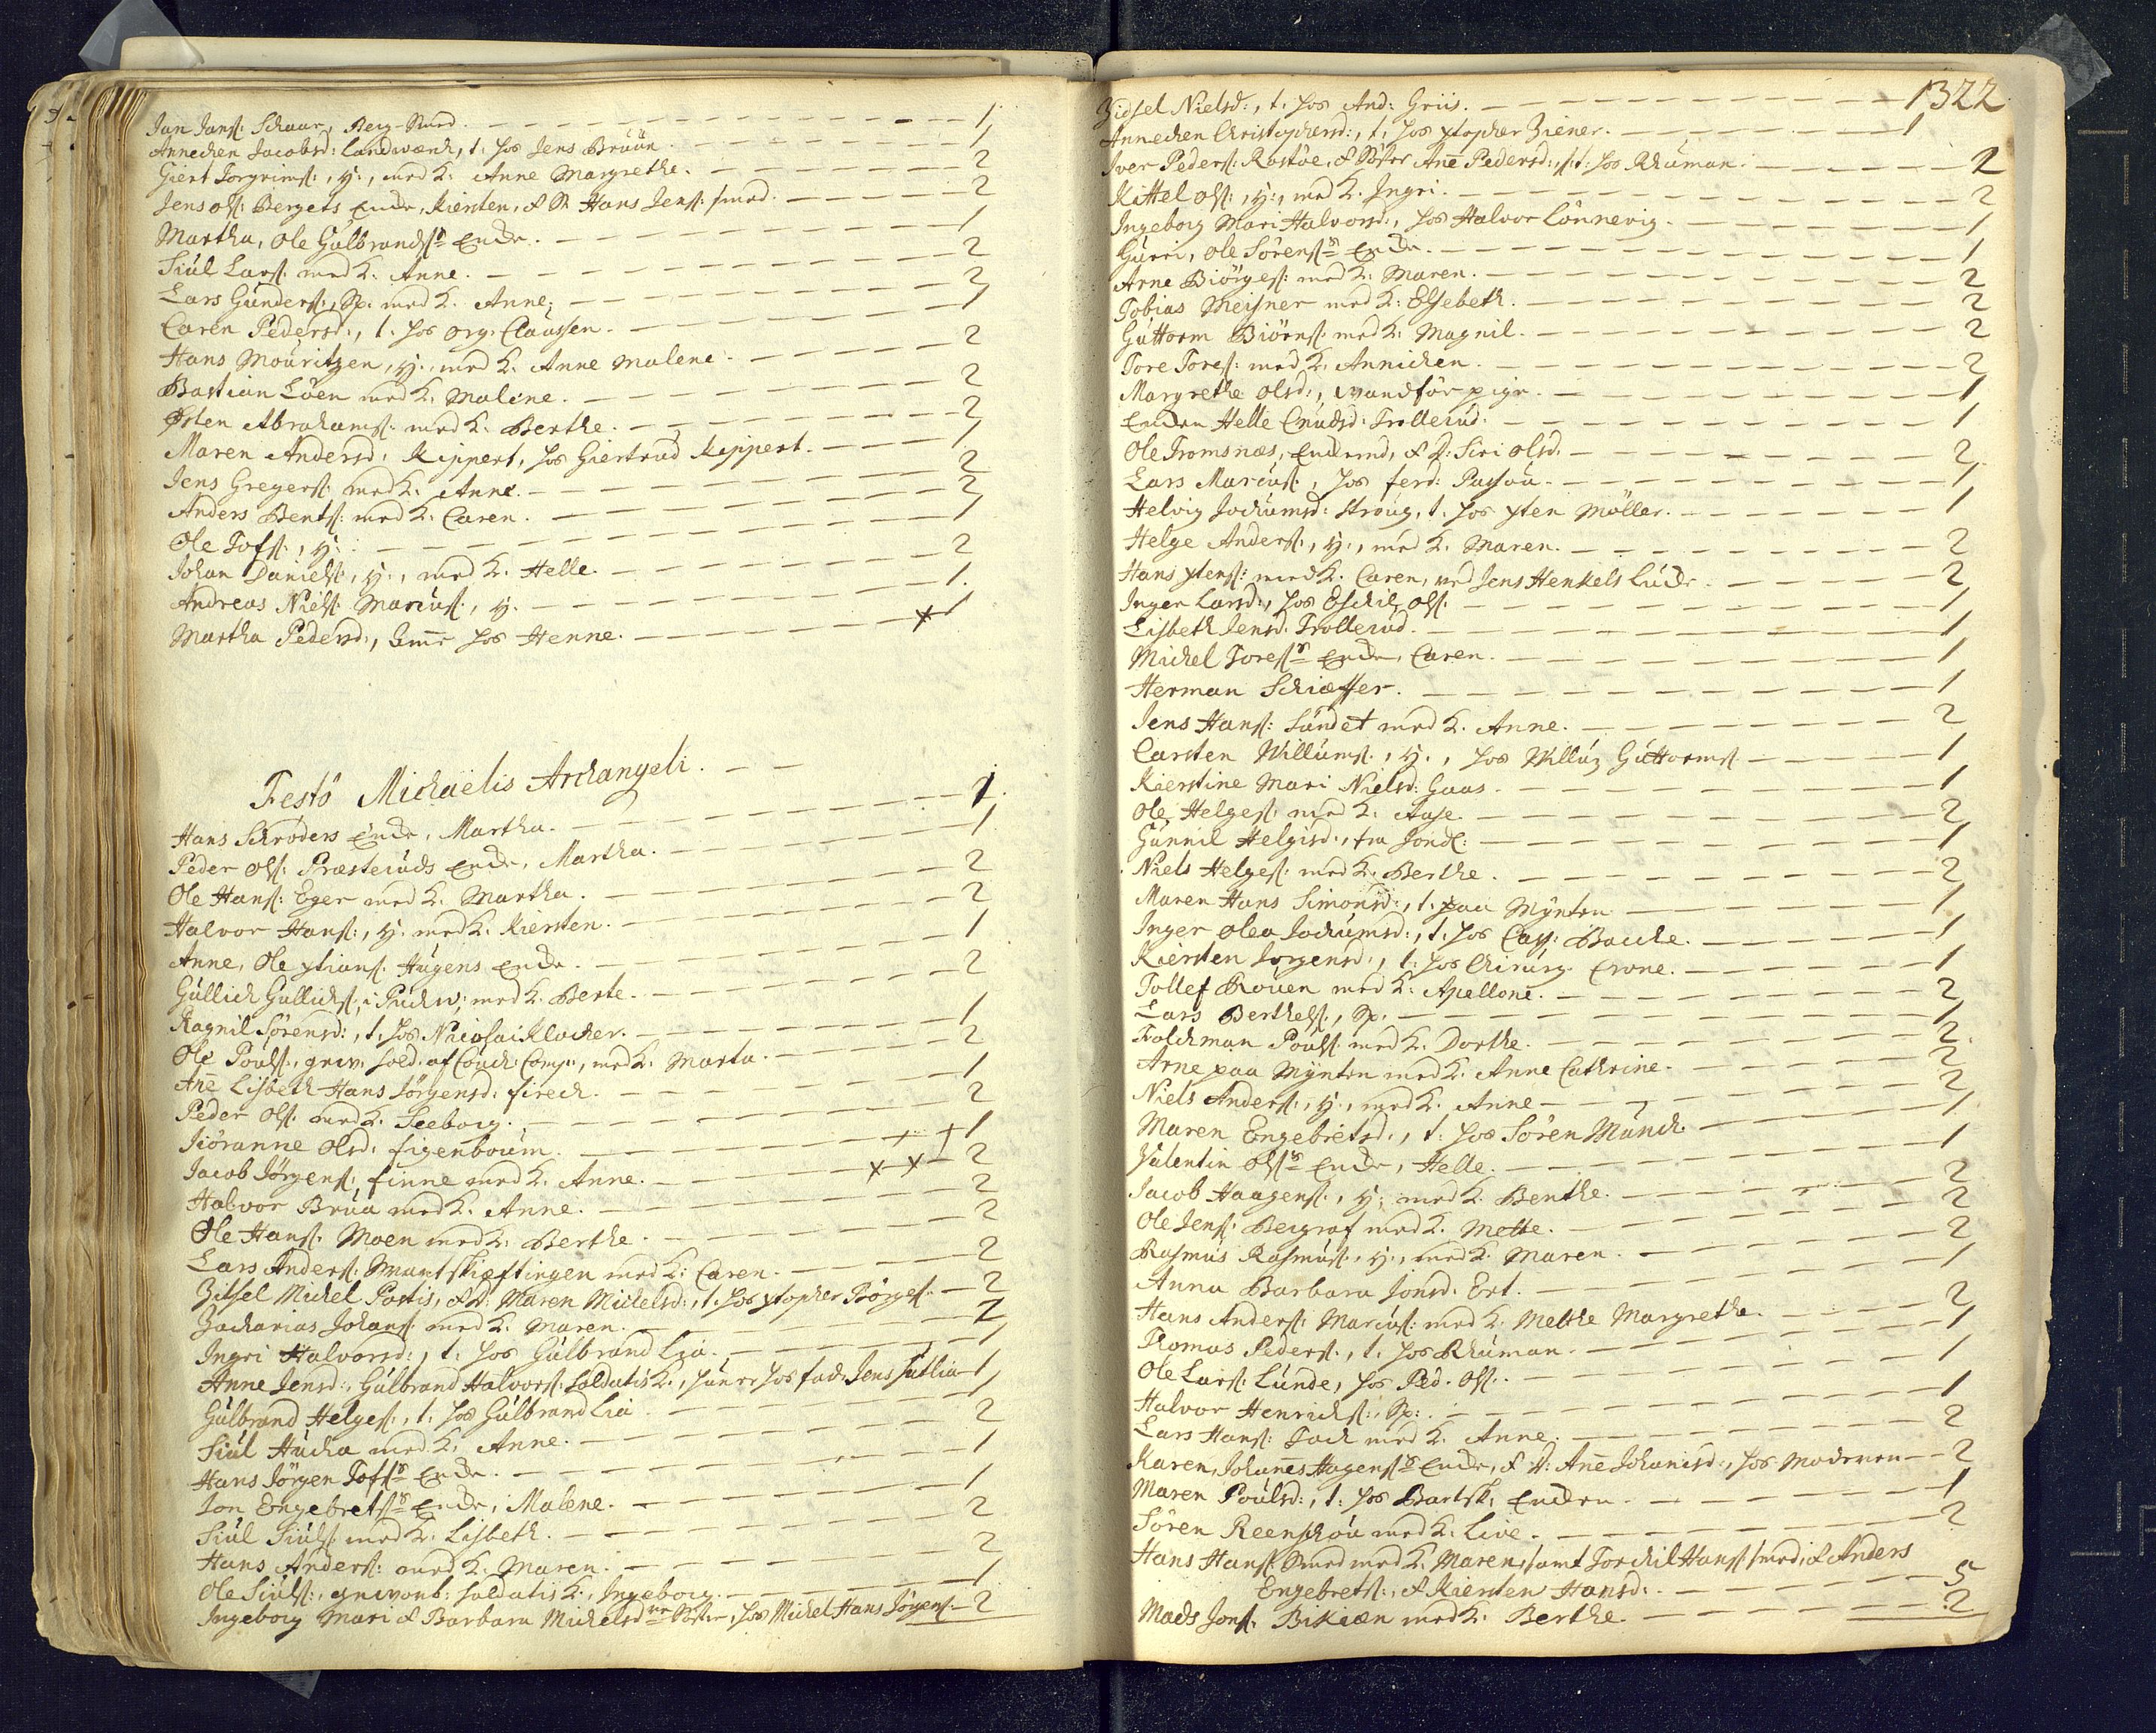 Jan Jans: Schaar, Berg-Smed. 1
Annechen Jacobsd: Landwærck, t. hos Jens Brüün. 1
Giert Torgrims:, y:, med K. Anne Margrethe. 2
Jens ols: Bergets Encke, Kiersten, & S. Hans Jens: smed. 2
Martha, Ole Gulbrandsrs Encke. 1
Siul Lars: med K. Anne. 2
Lars Gunders:, Sp. med K. Anne. 2
Caren Pedersd:, t. hos org: Claussen. 1
Hans Mouritzen, y:, med K. Anne Malene. 2
Bastian Löen med K. Malene. 2
Østen Abrahams: med K. Berthe. 2
Maren Andersd: Kippert, hos Giertrud Kippert. 1
Jens Gregers: med K. Anne. 2
Anders Bents: med K. Caren. 2
Ole Tofs:, y: 1
Johan Daniels:, y:, med K. Helle. 2
Andreas Niels: Marcus:, y. 1
Martha Pedersd:, hos Henne. x 1
Festo Michaëlis Archangeli.
Hans Schrøders Encke, Martha. 1
Peder Ols: Præsteruds Encke, Martha. 1
Ole Hans: Eger med K. Martha. 2
Halvor Hans:, y. med K. Kiersten. 2
Anne, Ole xtians: Haugens Encke. 1
Gullich Gullichs: i Puckw: med K. Berte. 2
Ragnil Sørensd:, t. hos Nicolai Klocker. 1
Ole Pouls:, gevo: sold. af Couch: Comp:, med K. Marta. 2
Añe Lisbeth Hans Jörgensd: firech. 1
Peder Ols: med K. Seeborg. 2
Jöranne Olsd: figenboum. + + 1
Jacob Jörgens: finne med K. Anne. x x 2
Halvor Brua med K. Anne. 2
Ole Hans: Moen med K. Berthe. 2
Lars Anders: Smartskieftingen med K: Caren. 2
Zitsel Michel Postis, & D: Maren Michelsd:, t. hos xtopher Börges: 2
Zacharias Johans: med K. Maren. 2
Ingri Halvorsd:, t: hos Gulbrand Lia. 1
Anne Jensd:, Gulbrand Halvors: soldatis K., hun er hos fad: Jens Sutlia 1
Gulbrand Helges:, t. hos Gulbrand Lia. 1
Siul Hucha med K. Anne. 2
Hans Jörgen Tofsrs Encke. 1
Jon Engebretsrs Encke, Malene. 1
Siul Siuls: med K. Lisbeth. 2
Hans Anders: med K. Maren. 2
Ole Siuls:, gevorb: soldatis K., Ingeborg. 1
Ingeborg Mari & Barbara Michelsd: Söstre, hos Michel Hans Jörgens: 2
1322
Zidsel Nielsd:, t. hos And: Griis. 1
Annechen Christophersd:, t. hos xtopher Ziener. 1
Iver Peders: Rostöe, & Söster Añe Pedersd:, t. hos Rhuman. 2
Kittel ols:, y:, med K. Ingri. 2
Ingeborg Mari Halvorsd:, hos Halvor Lönnevig. 1
Gurri, Ole Sørensrs Encke. 1
Arne Biörges: med K. Maren. 2
Tobias Meisner med K. Elsebeth. 2
Guttorm Biörns: med K. Magnil. 2
Tore Tores: med K. Annichen. 2
Margrethe olsd:, vandför pige. 1
Encken Helle Cnudsd: Trollerud. 1
Ole Tromsnæs, Enckemd, & D: Siri olsd. 2
Lars Marcus:, hos ferd: Passou. 1
Helvig Jochumsd: Straug, t. hos xten Møller. 1
Helge Anders:, y:, med K. Maren. 2
Hans xtens: med K. Caren, ved Jens Henkels Lucke. 2
Inger Larsd:, hos Eschil Ols: 1
Lisbeth Jensd: Trollerud. 1
Michel Toresrs Encke, Caren. 1
Herman Schiæffer. 1
Jens Hans: Sundet med K. Anne. 2
Carsten Willums:, y:, hos Willuz Guttorms: 1
Kierstine Mari Nielsd: Gaas. 1
Ole Helges: med K. Aase. 2
Gunnil Helgisd:, fra Jond: 1
Niels Helges: med K. Berthe. 2
Maren Hans Simonsd:, t. paa Mynten 1
Inger olea Jochumsd:, t. hos Cas: Backe. 1
Kiersten Jorgensd:, t. hos Chirurg. Crone. 1
Tollef Rouen med K. Apellone. 2
Lars Berthels:, Sp. 1
Folchman Pouls: med K. Dorthe. 2
Arne paa Mynten med K. Anne Cathrine. 2
Niels Anders:, y:, med K. Anne 2
Maren Engebretsd:, t: hos Sören Munch 1
Valentin olsrs Encke, Helle. 1
Jacob Haagens:, y: med K. Benthe. 2
Ole Jens: Bergraf med K. Mette. 2
Rasmus Rasmus:, y:, med K. Maren. 2
Anna Barbara Jonsd: Ert. 1
Hans Anders: Marcus: med K. Melthe Margretha. 2
Thomas Peders:, t. hos Rhuman. 1
Ole Lars: Lunde, hos Ped. Ols: 1
Halvor Henrichs:, Sp: 1
Lars Hans: Foch med K. Anne. 2
Karen, Johanes Hagensrs Encke, & D: Añe Johanisd:, hos Moderen 2
Maren Poulsd:, t: hos Bartsk: Encken. 1
Sören Reenschou med K: Live. 2
Hans Hans: Smed med K. Maren, samt Torchil Hans: smed, & Anders
Engebrets:, & Kiersten Hansd: 5
Mads Jons: Bikiæn med K. Berthe. 2